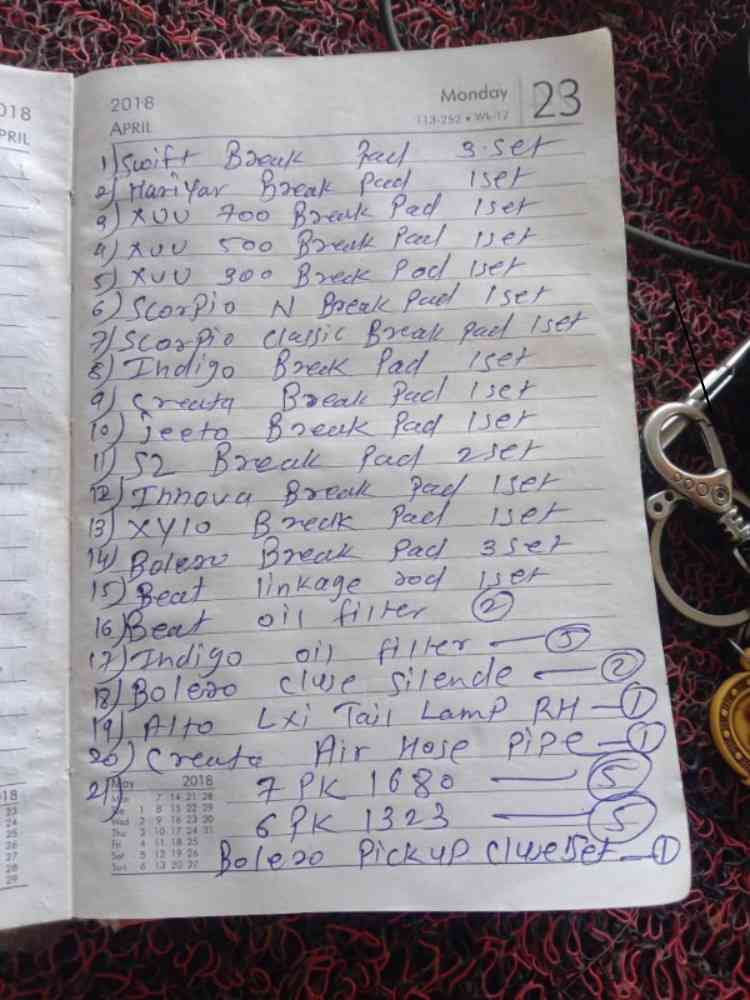 018
PRIL
2018
APRIL
Monday
113-252 • Wk-17
23
1) Swift Break Pad 3 set
2) Hariyar Break Pad 1set
3) XUV 700 Break Pad 1set
4) XUV 500 Break Pad 1set
5) XUV 300 Break Pad 1set
6) Scorpio N Break Pad 1set
7) Scorpio Classic Break Pad 1set
8) Indigo Break Pad 1set
9) Creata Break Pad 1set
10) Jeeto Break Pad 1set
11) S2 Break Pad 2set
12) Innova Break Pad 1set
13) XYLO Break Pad 1set
14) Bolero Break Pad 3set
15) Beat linkage rod 1set
16) Beat oil filter 2
17) Indigo oil filter — 5
18) Bolero Cluse Silende — 2
19) Alto Lxi Tail Lamp RH — 1
20) Creata Air Hose Pipe — 1
21) 7 PK 1680 — 5
6 PK 1323 — 5
Bolero Pickup Cluse set — 1
May 2018
Mon 7 14 21 28
Tue 1 8 15 22 29
Wed 2 9 16 23 30
Thu 3 10 17 24 31
Fri 4 11 18 25
Sat 5 12 19 26
Sun 6 13 20 27
018
23
24
25
26
27
28
29